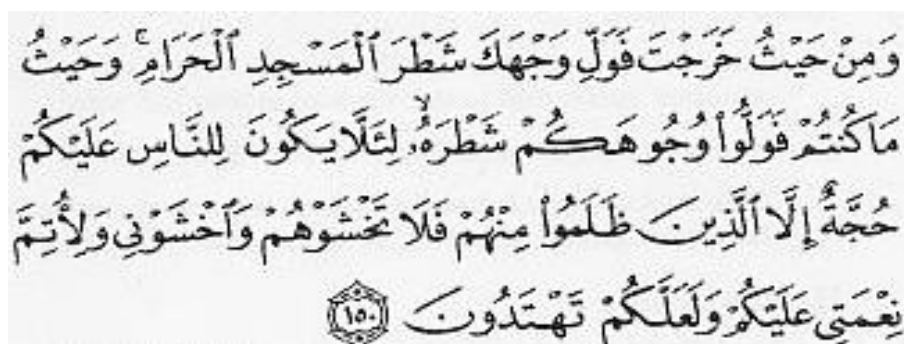 وَمِنْ حَيْثُ خَرَجْتَ فَوَلِّ وَجْهَكَ شَطْرَ ٱلْمَسْجِدِ ٱلْحَرَامِ ۚ وَحَيْثُ
مَا كُنتُمْ فَوَلُّوا۟ وُجُوهَكُمْ شَطْرَهُۥ لِئَلَّا يَكُونَ لِلنَّاسِ عَلَيْكُمْ
حُجَّةٌ إِلَّا ٱلَّذِينَ ظَلَمُوا۟ مِنْهُمْ فَلَا تَخْشَوْهُمْ وَٱخْشَوْنِى وَلِأُتِمَّ
نِعْمَتِى عَلَيْكُمْ وَلَعَلَّكُمْ تَهْتَدُونَ ١٥٠